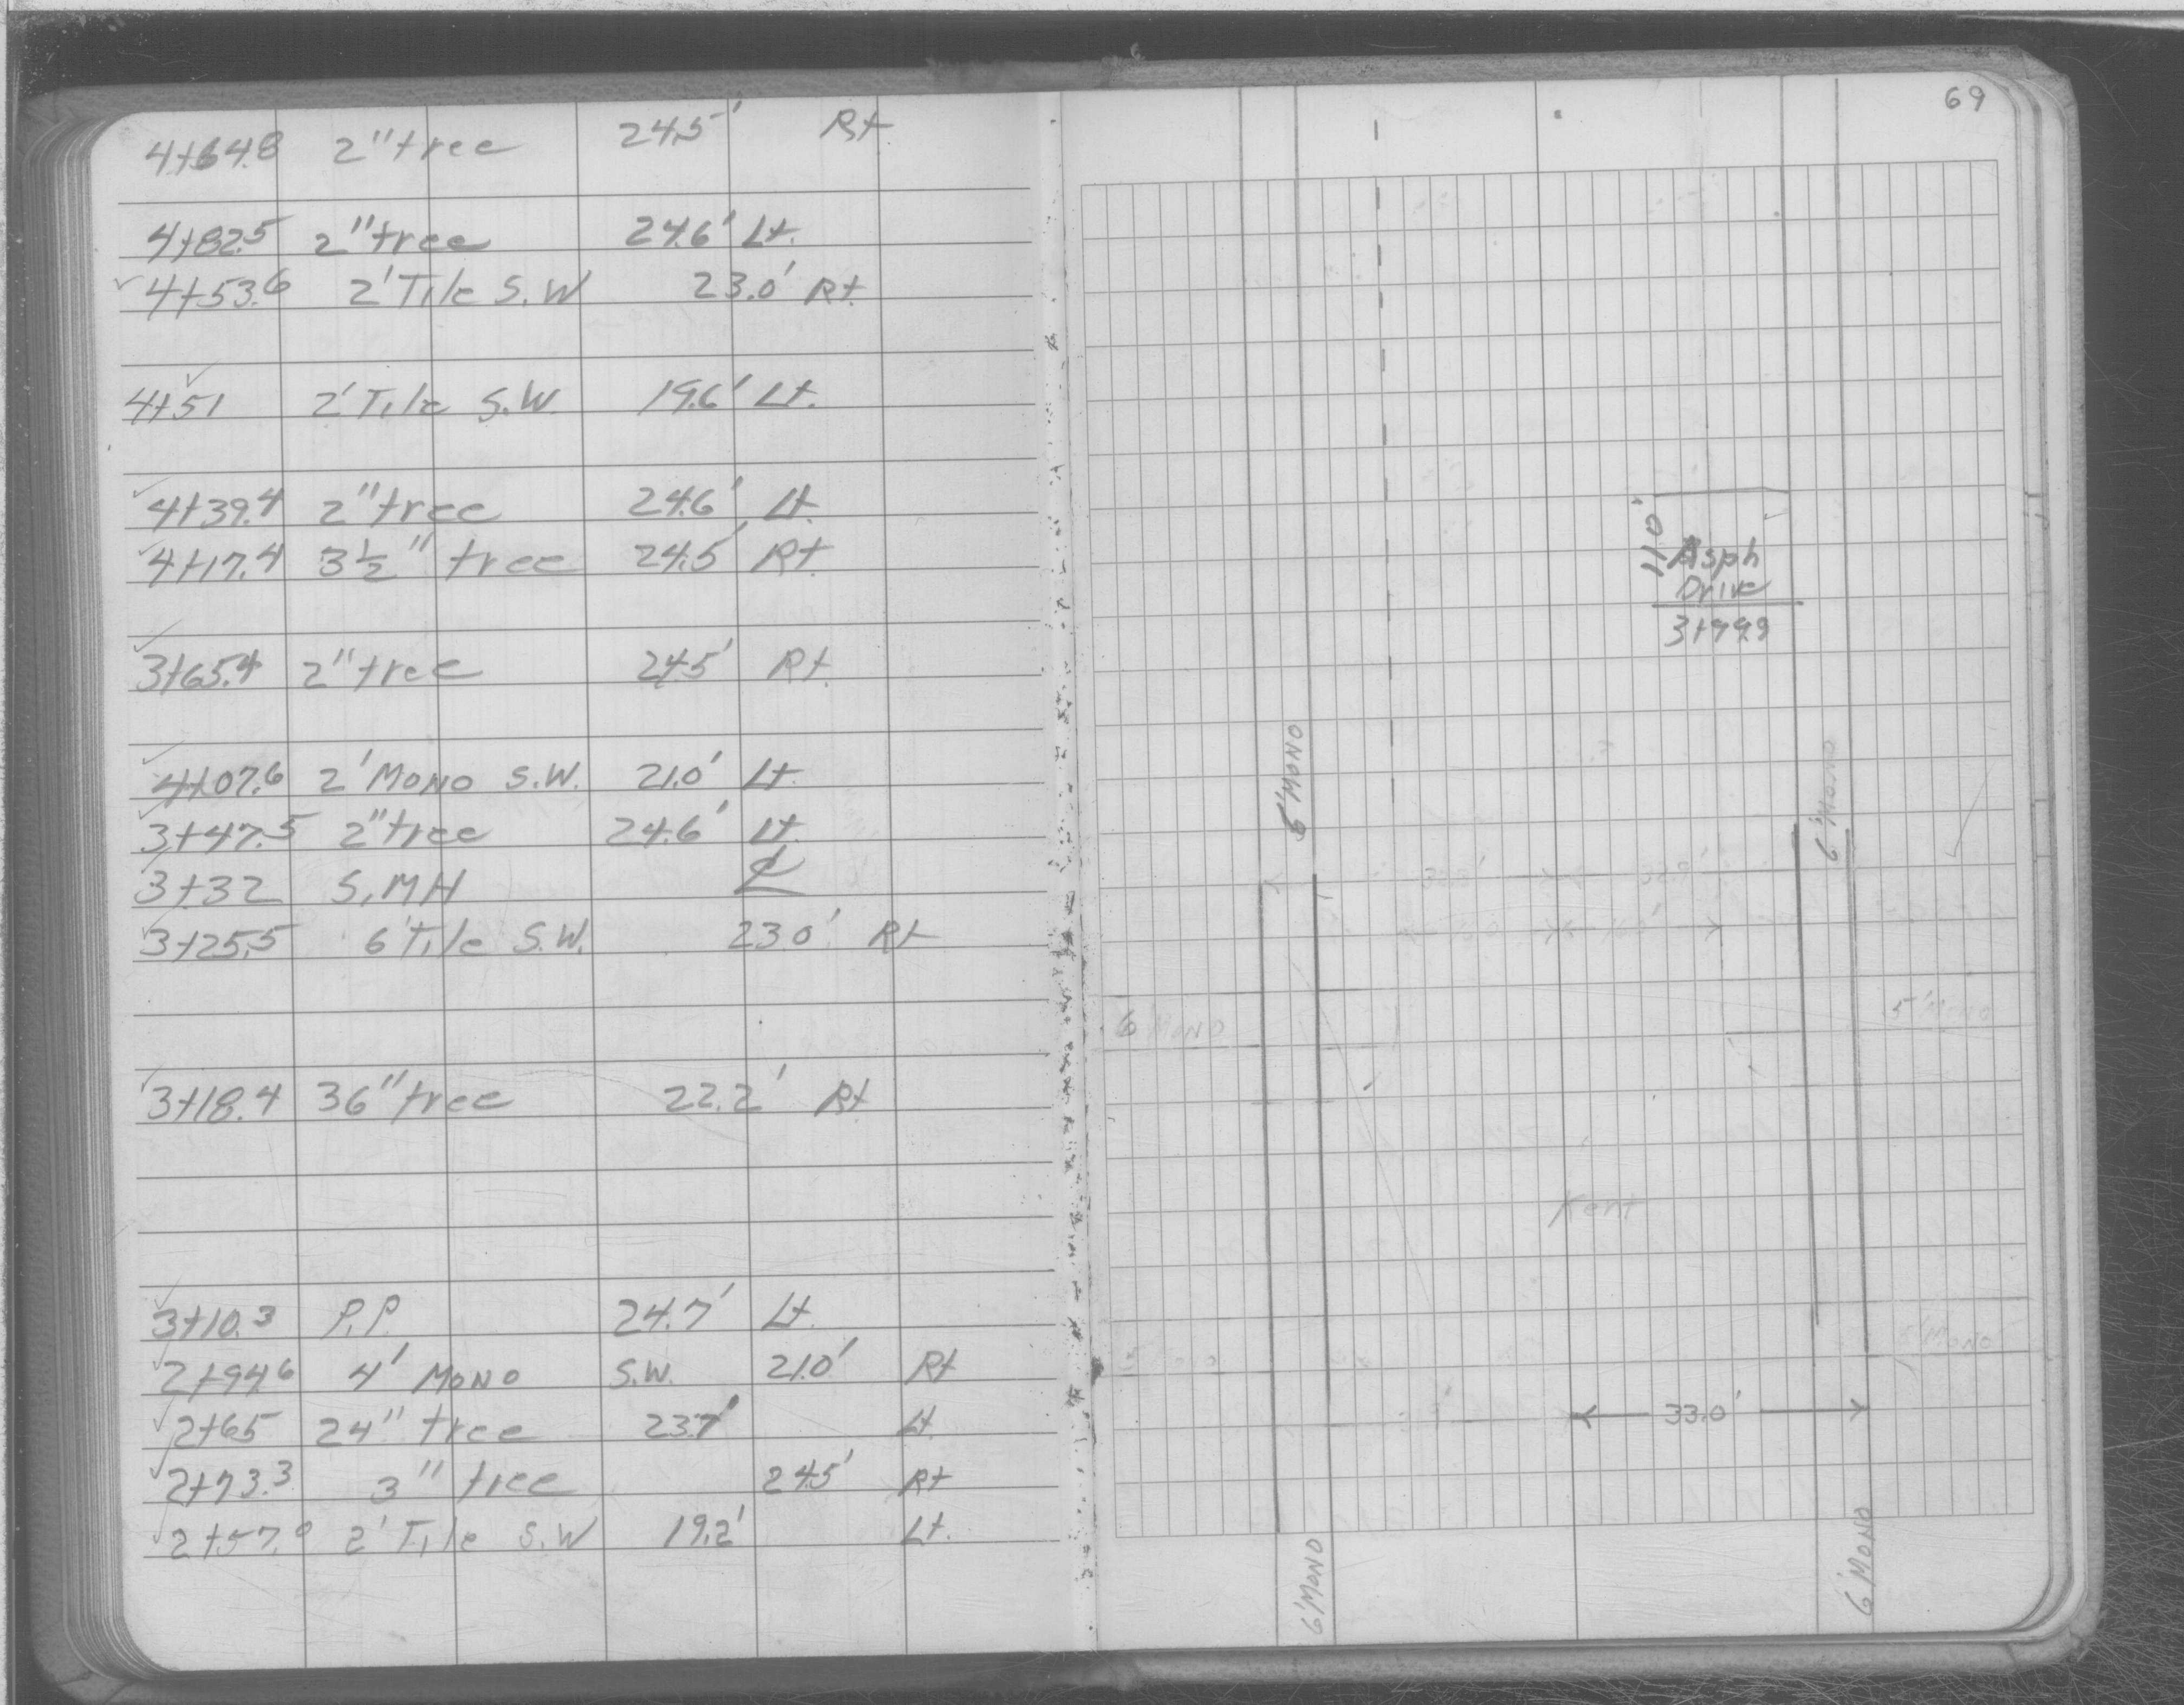 4+64.8 2" tree 24.5' Rt
4+82.5 2" tree 24.6' Lt.
4+53.6 2' Tile S.W 23.0' Rt.
4+51 2' Tile S.W. 19.6' Lt.
4+39.4 2" tree 24.6' Lt.
4+17.4 3½" tree 24.5' Rt.
3+65.4 2" tree 24.5' Rt.
4+07.6 2' MONO S.W. 21.0' Lt.
3+47.5 2" tree 24.6' Lt.
3+32 S.MH ℄
3+25.5 6' Tile S.W. 23.0' Rt
3+18.4 36" tree 22.2' Rt
3+10.3 P.P. 24.7' Lt.
2+94.6 4' MONO S.W. 21.0' Rt
2+65 24" tree 23.7' Lt.
2+73.3 3" tree 24.5' Rt
2+57.0 2' Tile S.W 19.2' Lt.
69
11.0'
Asph
Drive
3+79.9
MONO
6' MONO
6' MONO
5' MONO
Kent
5' MONO
33.0'
6' MONO
6' MONO